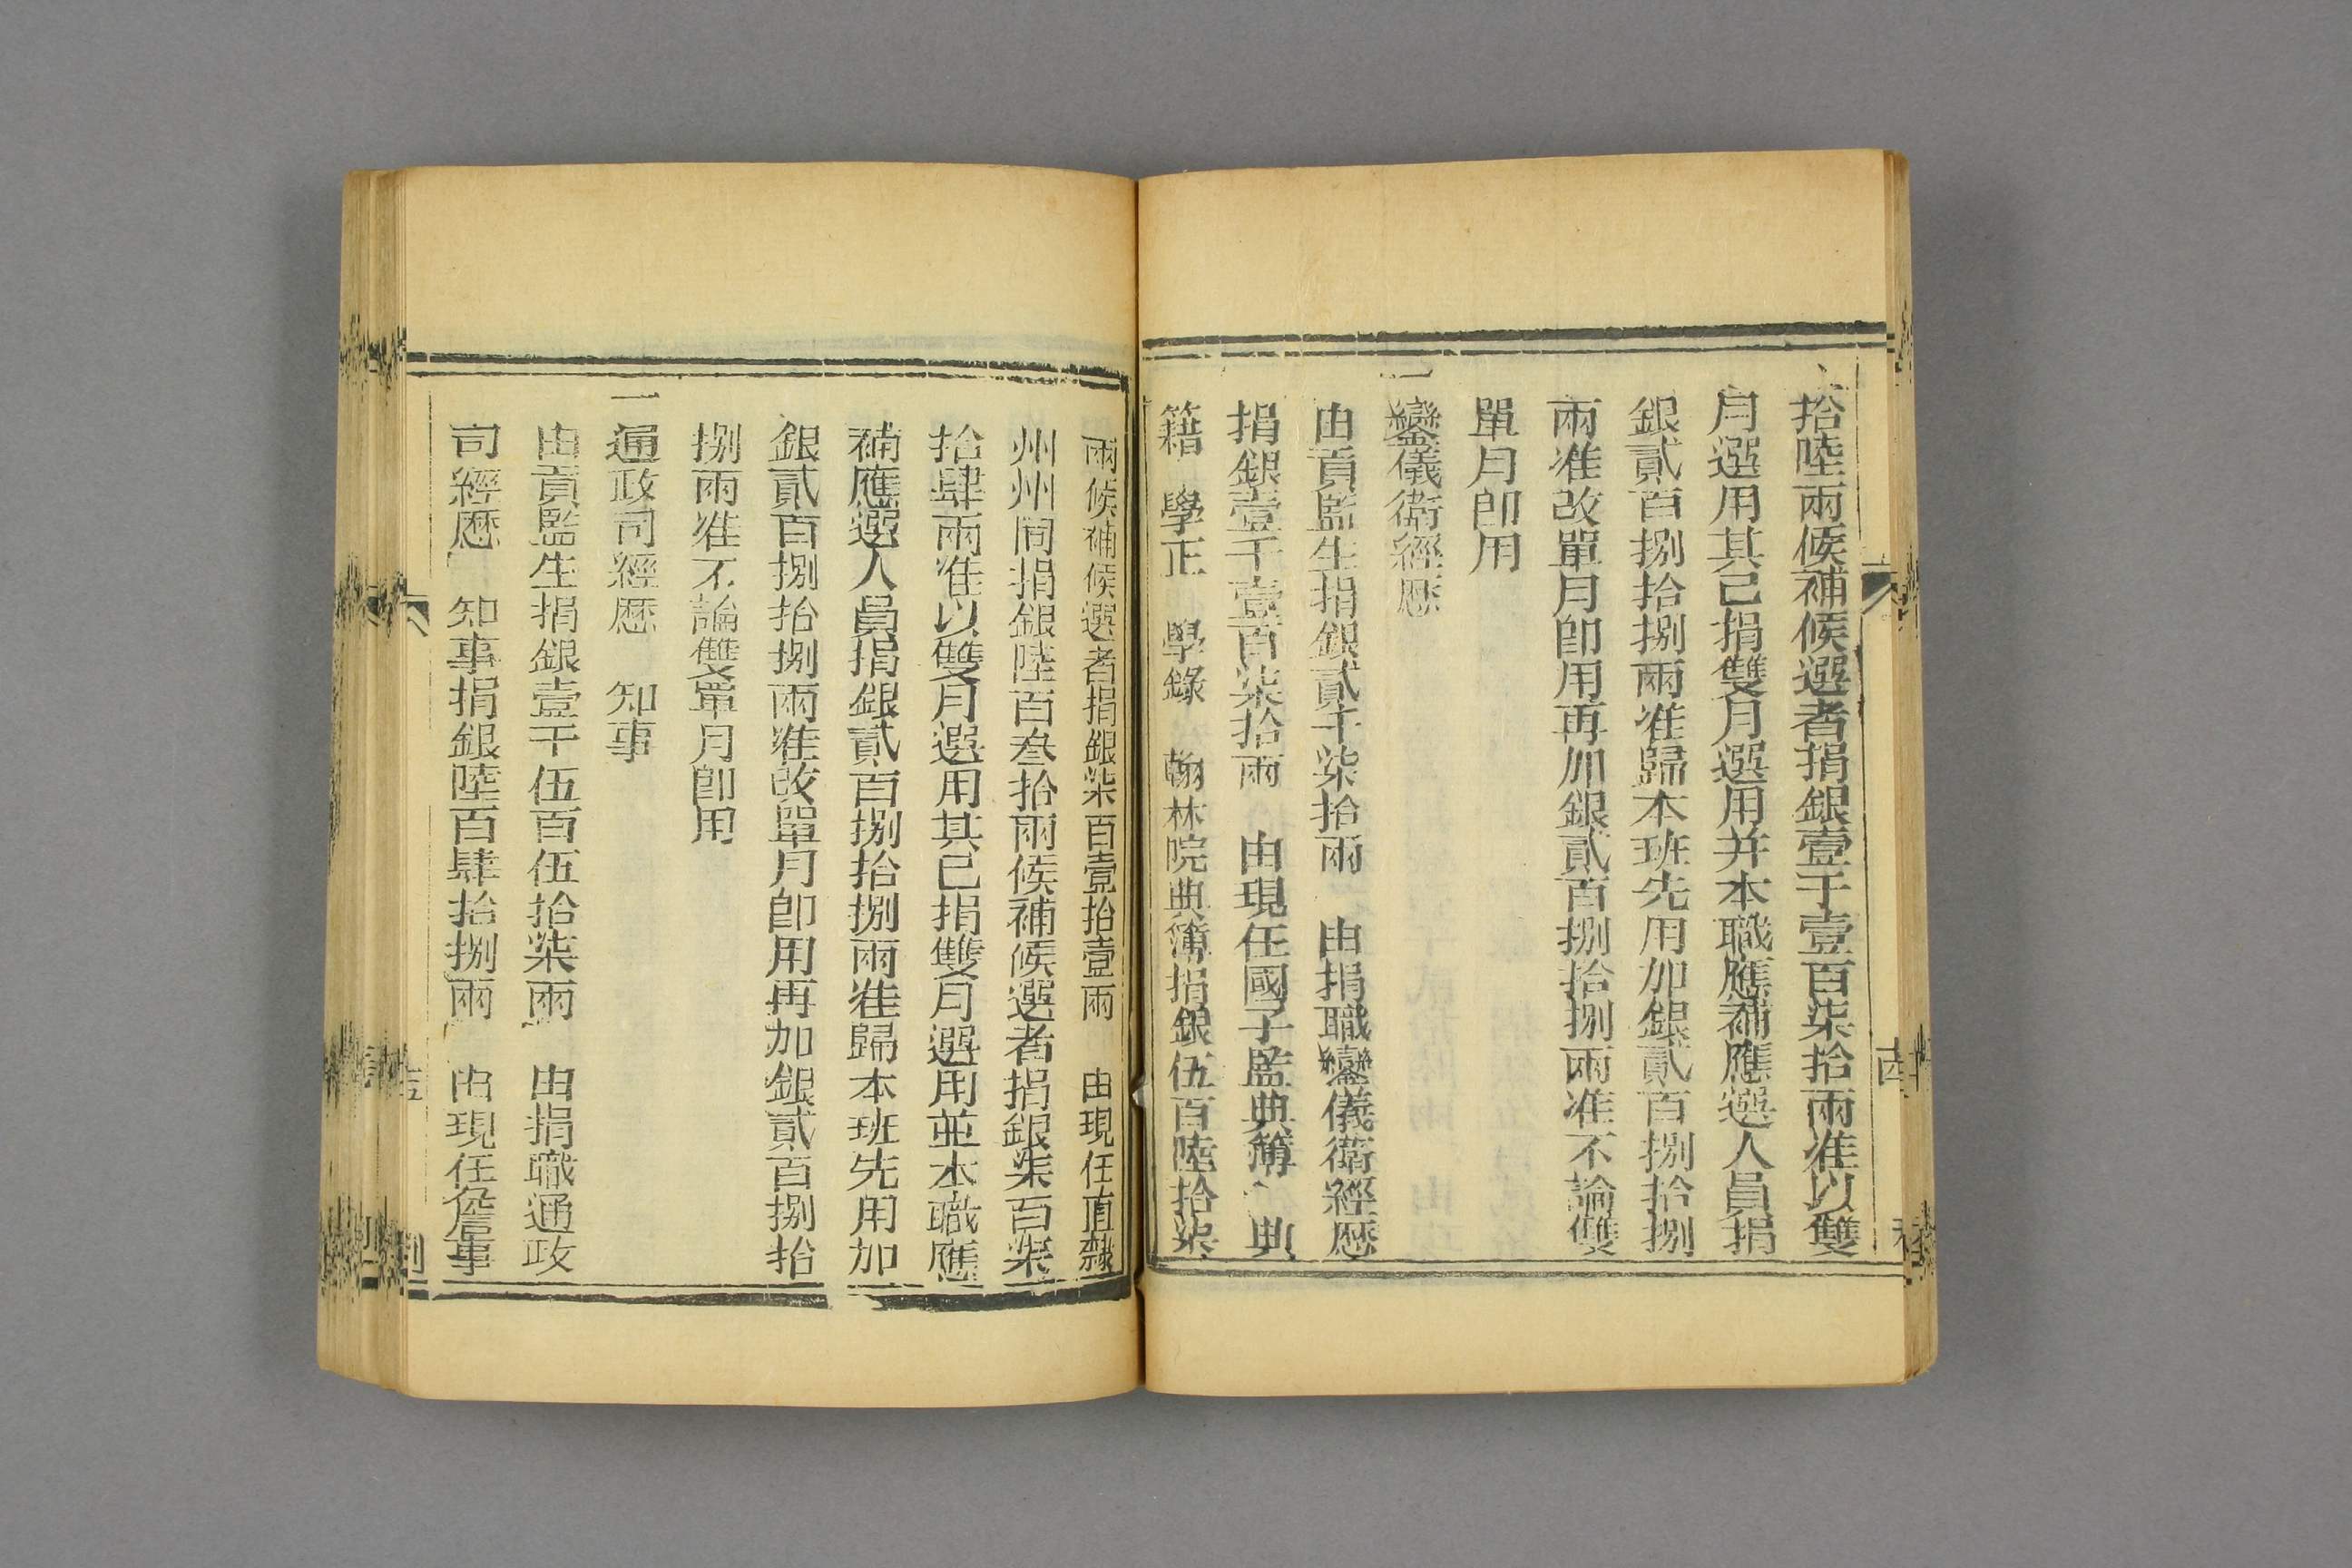 拾陸兩候補候選者捐銀壹千壹百柒拾兩准以雙
月選用其己捐雙月選用并本職應補應選人員捐
銀貳百捌拾捌兩准歸本班先用加銀貳百捌拾捌
兩准改單月卽用再加銀貳百捌拾捌兩准不論雙
單月卽用
一鑾儀衛經歷
由貢監生捐銀貳千柒拾兩 由捐職鑾儀衛經歷
捐銀壹千壹百柒拾兩 由現任國子監典簿 典
籍 學正 學錄 翰林院典簿捐銀伍百陸拾柒
兩候補候選者捐銀柒百壹拾壹兩 由現任直隸
州州同捐銀陸百叁拾兩候補候選者捐銀柒百柒
拾肆兩准以雙月選用其己捐雙月選用並本職應
補應選人員捐銀貳百捌拾捌兩准歸本班先用加
銀貳百捌拾捌兩准改單月卽用再加銀貳百捌拾
捌兩准不論雙單月卽用
一通政司經歷 知事
由貢監生捐銀壹千伍百伍拾柒兩 由捐職通政
司經歷 知事捐銀陸百肆拾捌兩 由現任詹事